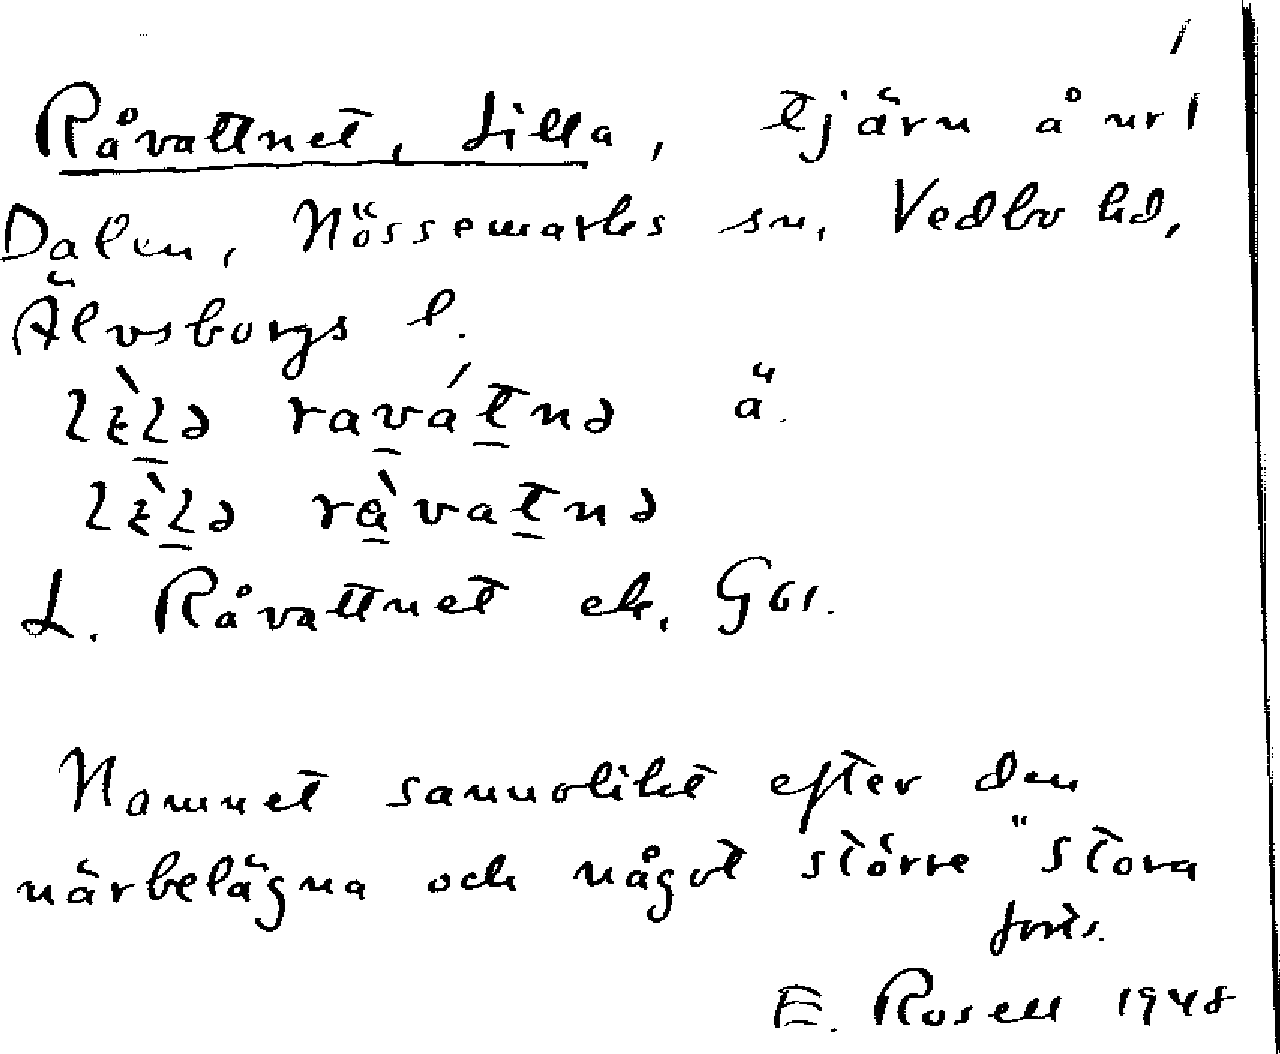 1
Råvattnet, Lilla, tjärn å nr 1
Dalen, Nössemarks sn, Vedbo hd,
Älvsborgs l.
lɛ̀lə ravátnə ä.
lɛ̀lə ràvatnə
L. Råvattnet ek. Gsr.
Namnet sannolikt efter den
närbelägna och något större "Stora
forts.
E. Rosell 1948